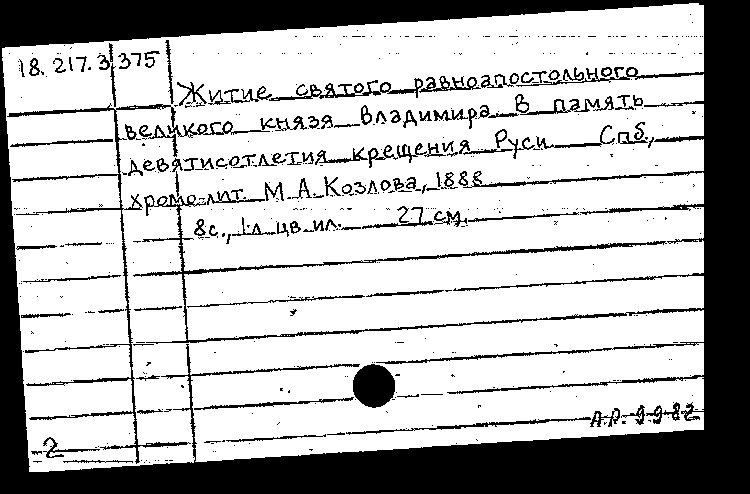 18.217.3.375
Житие святого равноапостольного
великого князя Владимира. В память
девятисотлетия крещения Руси Спб.,
хромо-лит. М.А. Козлова, 1888
8с., 1л цв. ил. 27 см.
2
А.Р. 9.9.82